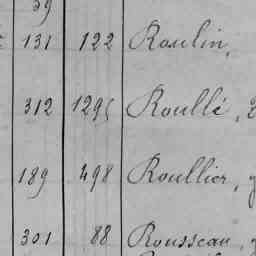 39
131 122 Roulin,
312 1295 Roullé,
189 498 Roullier,
301 88 Rousseau,